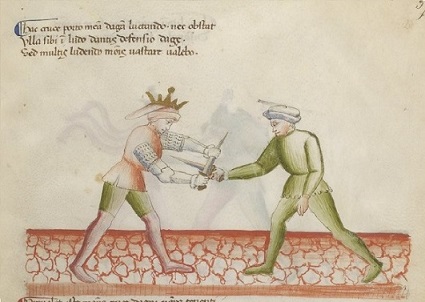 Hac cruce porto meā dagā luctando. nec obstat
Ulla sibi ī ludo dantis defensio dage.
Sed multis ludendo mōis vastare valebo.